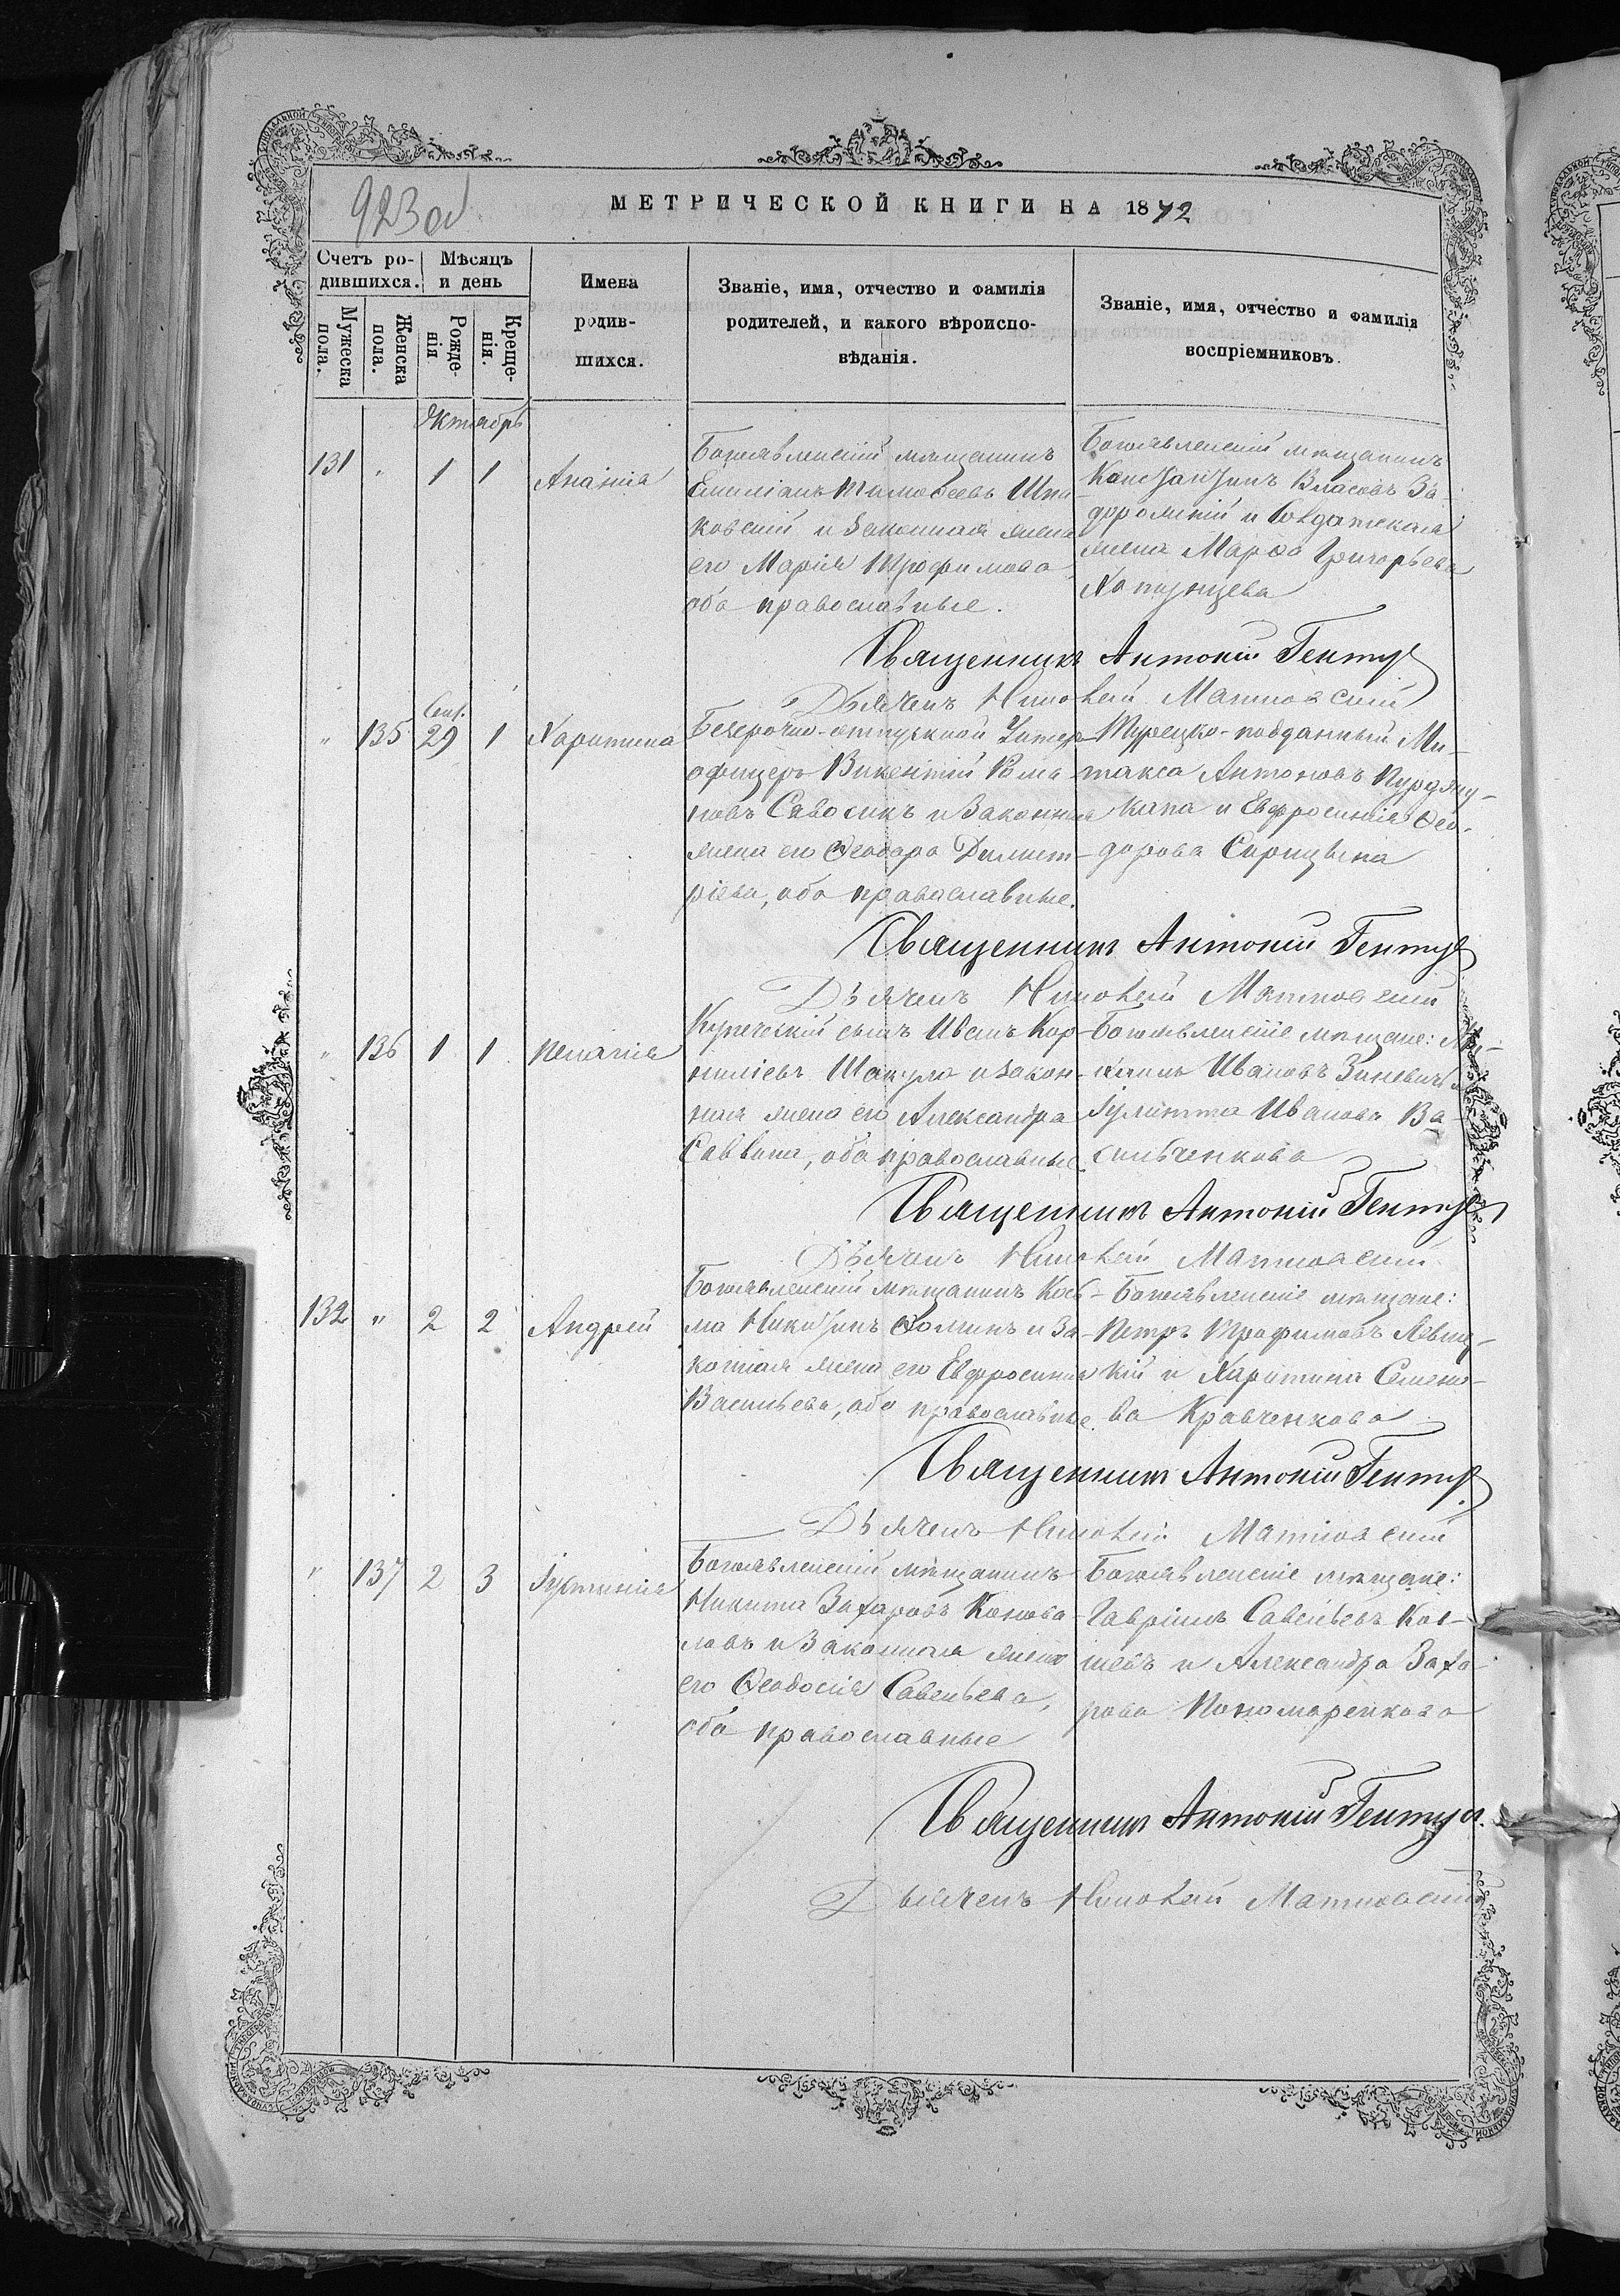 923 об
МЕТРИЧЕСКОЙ КНИГИ НА 1872
Счетъ ро-
дившихся.
Мѣсяцъ
и день
Мужеска
пола.
Женска
пола.
Рожде-
нія
Креще-
нія.
Имена
родив-
шихся.
Званіе, имя, отчество и фамилія
родителей, и какого вѣроиспо-
вѣданія.
Званіе, имя, отчество и фамилія
воспріемниковъ.
Октябрь
131 " 1 1 Ананія
Богоявленскій мѣщанинъ
Емиліанъ Тимоѳеевъ Шпа-
ковскій и законная жена
его Марія Трофимова,
оба православные.
Богоявленскій мѣщанинъ
Константинъ Власовъ За-
дорожній и Солдатская
жена Марѳа Григорьева
Священникъ Антоній Гентул
Дьячекъ Матковскій
" 135 Сент. 29 1 Харитина
Безсрочно-отпускной Унтеръ
офицеръ Викентій Рома-
новъ Савосикъ и Законная
жена его Ѳеодора Димит-
ріева, оба православные.
Турецко-подданный Ми-
такса Антоновъ
и Евфросинія Ѳео-
дорова
Священникъ Антоній Гентул
Дьячекъ Матковскій
" 136 1 1 Пелагія
Купеческій сынъ Иванъ Кор-
ниліевъ и закон-
ная жена его Александра
Саввина, оба православные.
Богоявленскіе мѣщане: Ми-
хаилъ Ивановъ Зиневичъ и
Іулитта Иванова Ва-
сильченкова
Священникъ Антоній Гентул
Дьячекъ Матковскій
132 " 2 2 Андрей
Богоявленскій мѣщанинъ Кос-
ма Никитинъ Ѳоминъ и За-
конная жена его Евфросинія
Васильева, оба православные.
Богоявленскіе мѣщане:
Петръ Трофимовъ Левиц-
кій и Харитина Семено-
ва Кравченкова
Священникъ Антоній Гентул
Дьячекъ Матковскій
" 137 2 3 Іустинія
Богоявленскій мѣщанинъ
Никита Захаровъ Конова-
ловъ и Законная жена
его Ѳеодосія Савельева,
оба православные
Богоявленскіе мѣщане:
Гавріилъ Савельевъ Кос-
и Александра Заха-
рова Пономаренкова
Священникъ Антоній Гентул.
Дьячекъ Матковскій